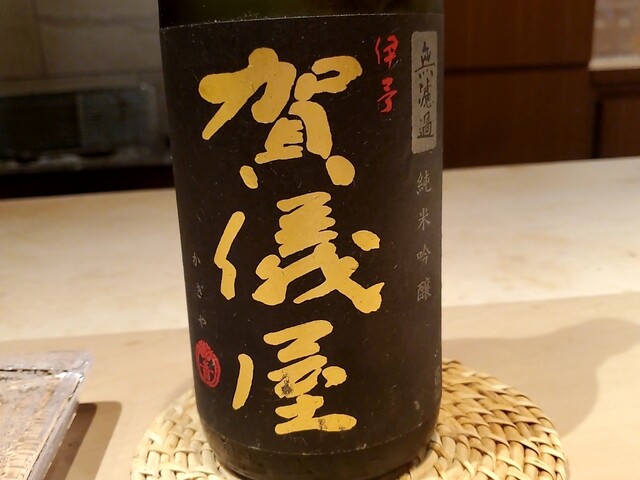 無濾過
純米吟醸
伊予
賀儀屋
かぎや